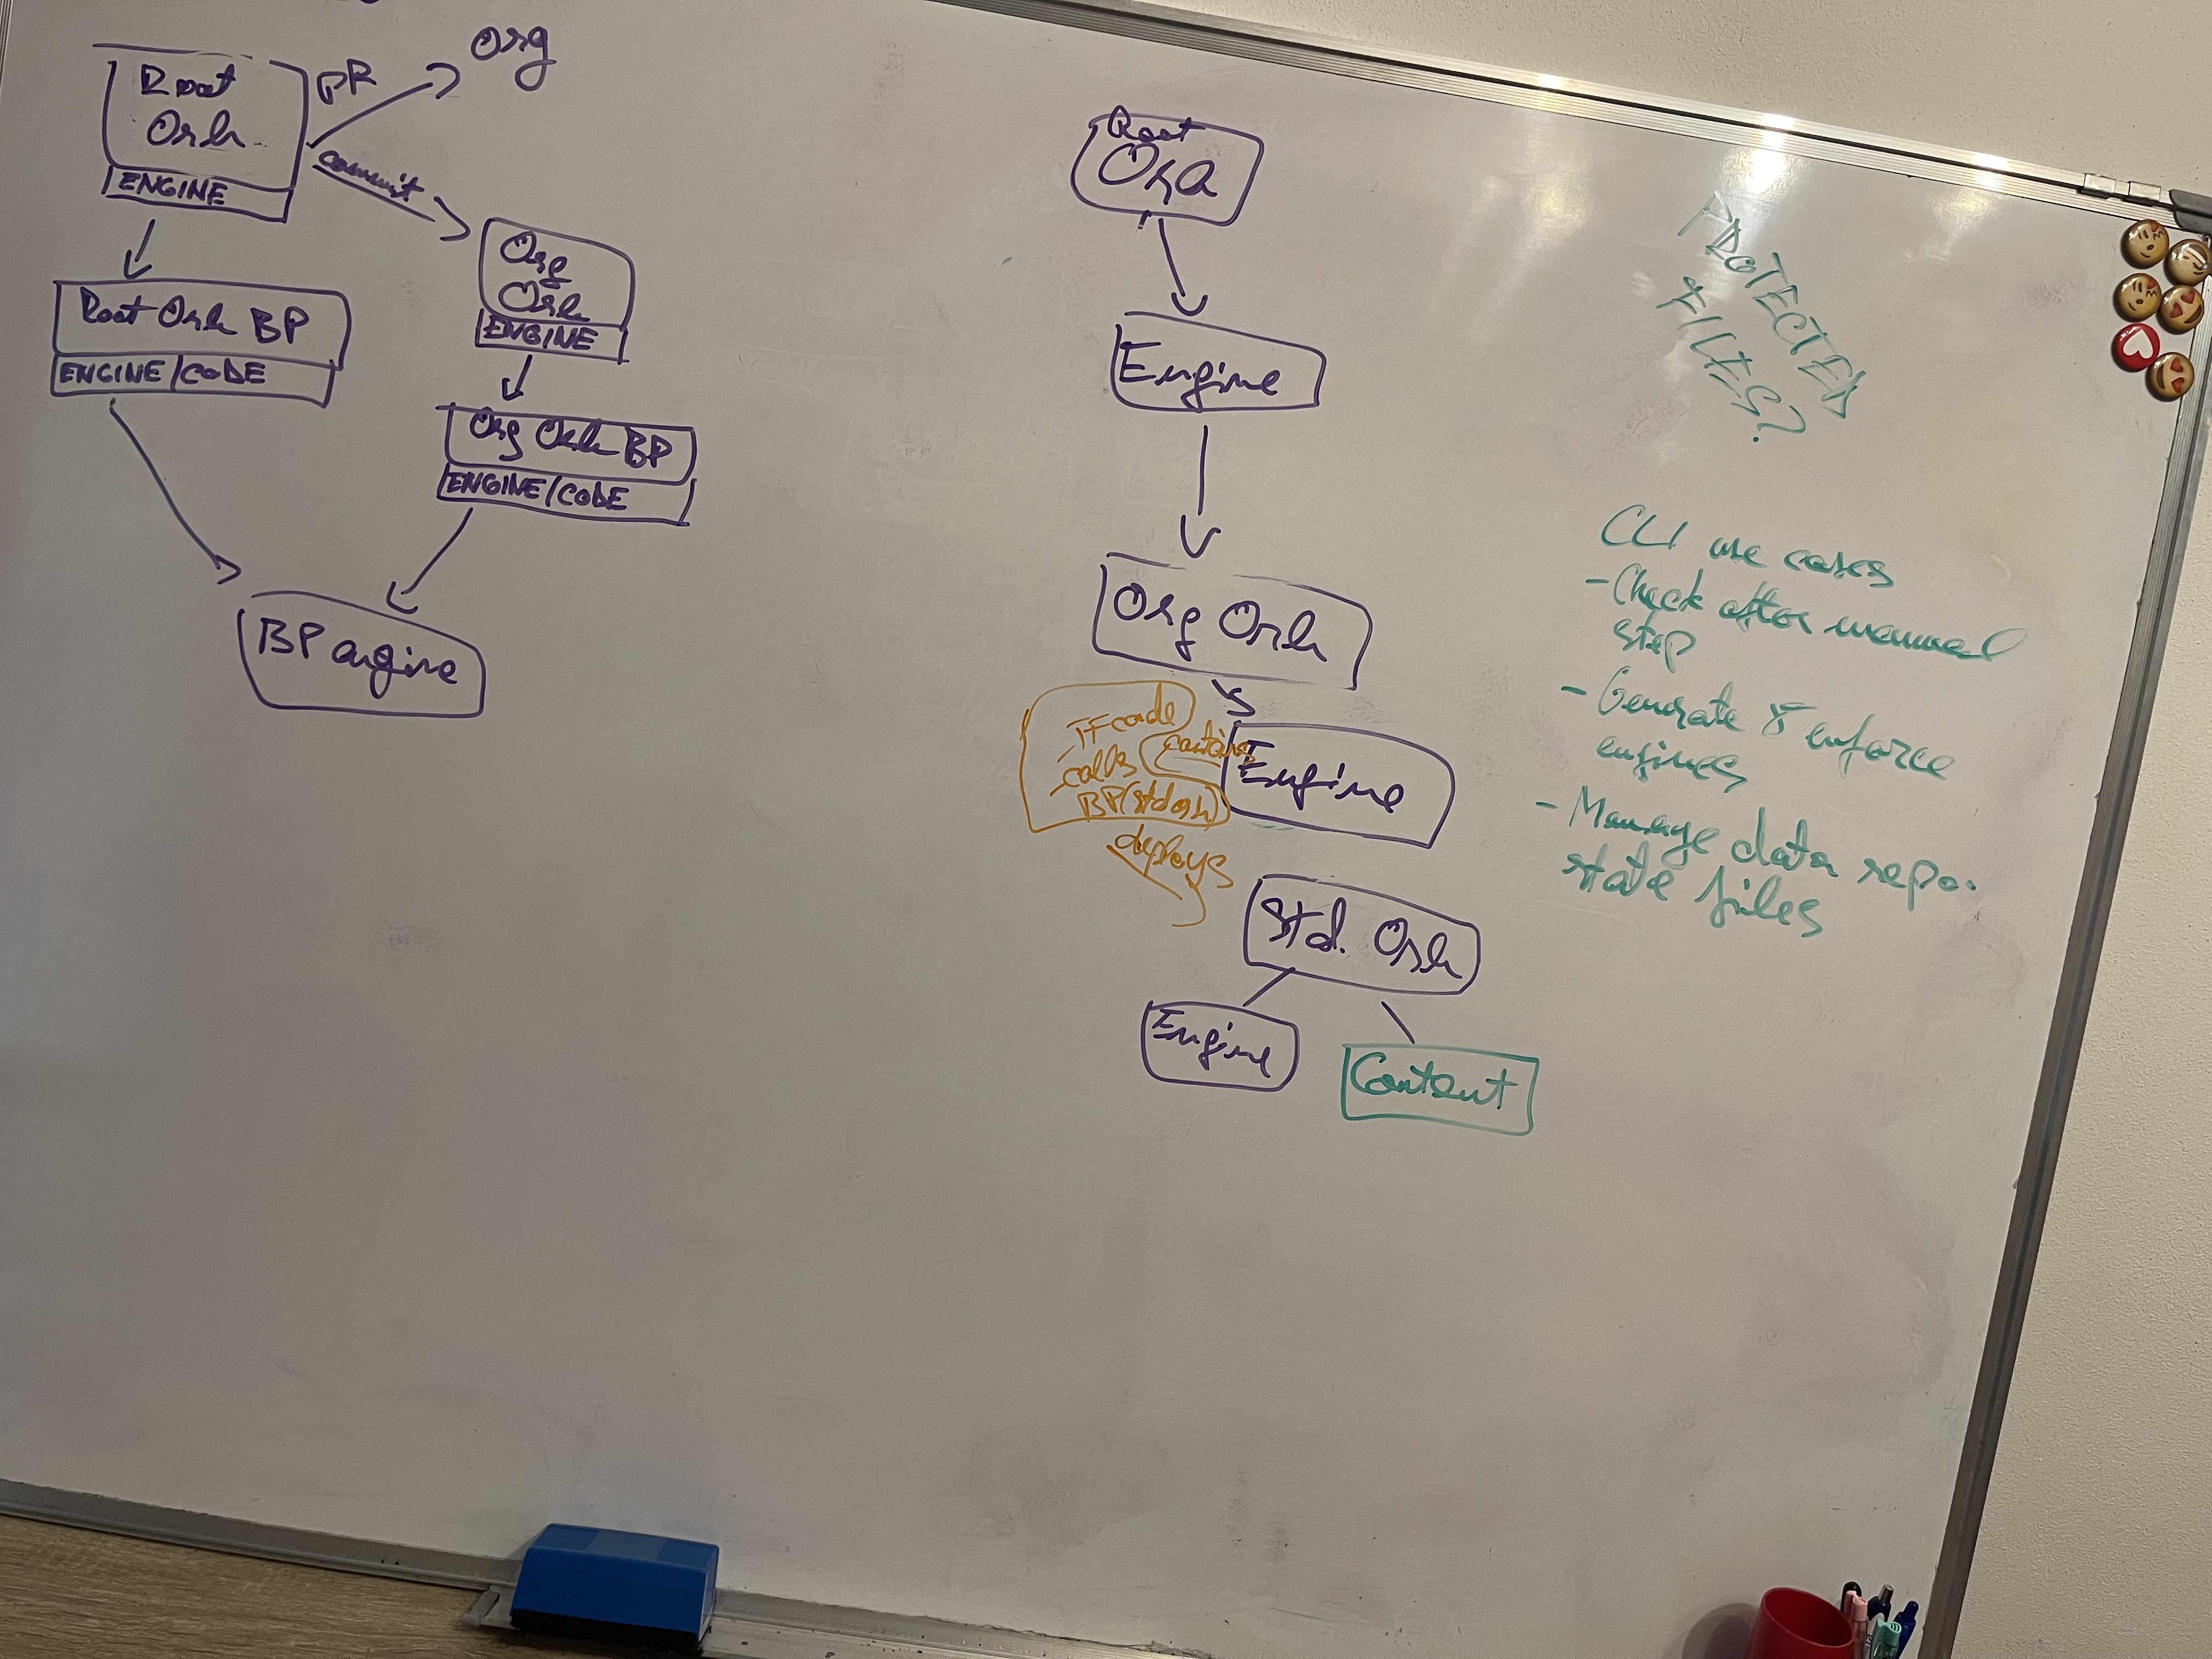 Root
Orh
ENGINE
PR
Org
commit
Root Orh BP
ENGINE/CODE
Org
Orh
ENGINE
Org Orh BP
ENGINE/CODE
BP engine
Root
Engine
Org Orh
TF code
calls
BP(std orh)
contains
Engine
deploys
Std. Orh
Engine
Content
PROTECTED
FILES?
CLI use cases
- Check after manual
step
- Generate & enforce
engines
- Manage data repo.
state files